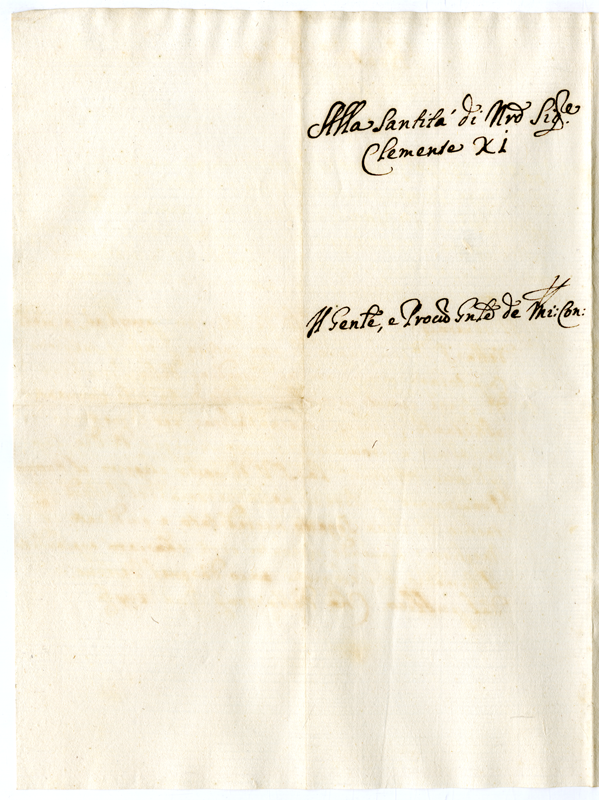 Alla Santità di Nro̅ Sigre
Clemente XI
Il Gen̅te, e Proc̅ro̅ Gn̅le de Mi: Con: